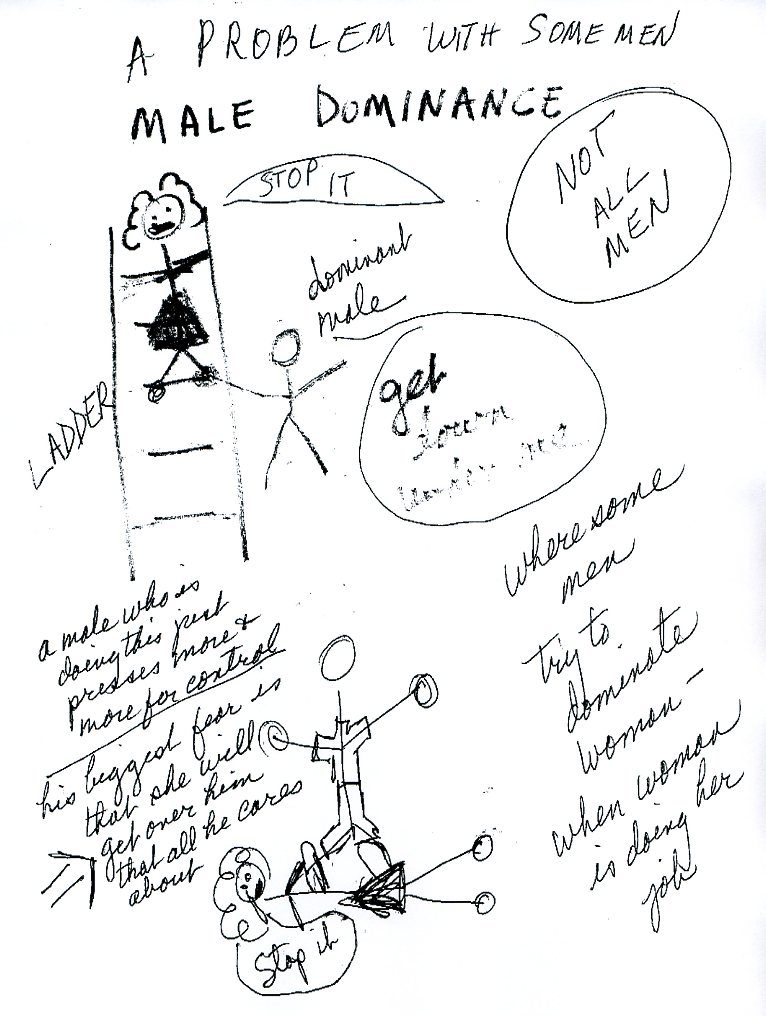 A PROBLEM WITH SOME MEN
MALE DOMINANCE
STOP IT
NOT
ALL
MEN
dominant
male
get
down
under me
LADDER
where some
men
try to
dominate
woman -
when woman
is doing her
job
a male who is
doing this just
presses more &
more for control
his biggest fear is
that she will
get over him
that all he cares
about
Stop it